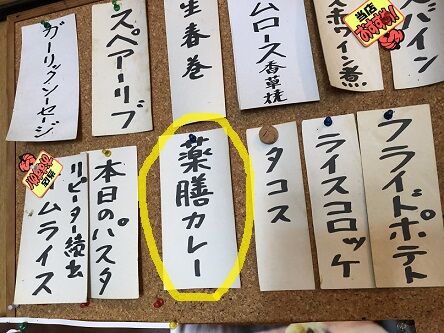 ガーリックソーセージ
スペアーリブ
生春巻
ムロース香草焼
当店
おすすめ!
赤ワイン煮
スパイン
当店
おすすめ!
リピーター続出
ムライス
本日のパスタ
薬膳カレー
タコス
ライスコロッケ
フライドポテト